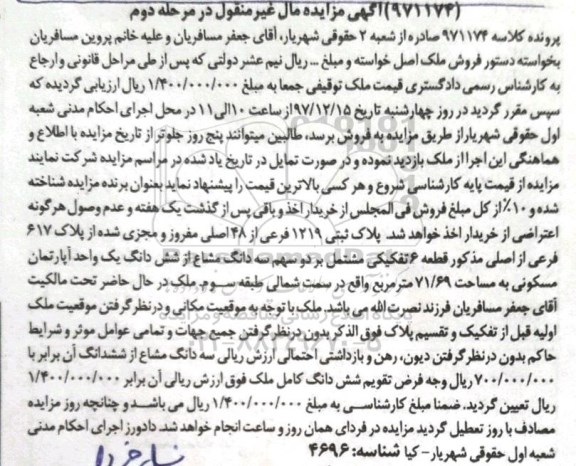 (۹۷۱۱۷۴) آگهی مزایده مال غیر منقول در مرحله دوم
پرونده کلاسه ۹۷۱۱۷۴ صادره از شعبه ۲ حقوقی شهریار، آقای جعفر مسافریان و علیه خانم پروین مسافریان
بخواسته دستور فروش ملک اصل خواسته و مبلغ ... ریال نیم عشر دولتی که پس از طی مراحل قانونی و ارجاع
به کارشناس رسمی دادگستری قیمت ملک توقیفی جمعا به مبلغ ۱/۴۰۰/۰۰۰/۰۰۰ ریال ارزیابی گردیده که
سپس مقرر گردید در روز چهارشنبه تاریخ ۹۷/۱۲/۱۵ از ساعت ۱۰ الی ۱۱ در محل اجرای احکام مدنی شعبه
اول حقوقی شهریار از طریق مزایده به فروش برسد، طالبین میتوانند پنج روز جلوتر از تاریخ مزایده با اطلاع و
هماهنگی این اجرا از ملک بازدید نموده و در صورت تمایل در تاریخ یاد شده در مراسم مزایده شرکت نمایند
مزایده از قیمت پایه کارشناسی شروع و هر کسی بالاترین قیمت را پیشنهاد نماید بعنوان برنده مزایده شناخته
شده و ۱۰٪ از کل مبلغ فروش فی المجلس از خریدار اخذ و باقی پس از گذشت یک هفته و عدم وصول هرگونه
اعتراضی از خریدار اخذ خواهد شد. پلاک ثبتی ۱۲۱۹ فرعی از ۴۸ اصلی مفروز و مجزی شده از پلاک ۶۱۷
فرعی از اصلی مذکور قطعه ۶ تفکیکی مشتمل بر دو سهم سه دانگ مشاع از شش دانگ یک واحد آپارتمان
مسکونی به مساحت ۷۱/۶۹ مترمربع واقع در سمت شمالی طبقه سوم. ملک در حال حاضر تحت مالکیت
آقای جعفر مسافریان فرزند نصرت الله می باشد. ملک با توجه به موقعیت مکانی و در نظر گرفتن موقعیت ملک
اولیه قبل از تفکیک و تقسیم پلاک فوق الذکر بدون در نظر گرفتن جمیع جهات و تمامی عوامل موثر و شرایط
حاکم بدون در نظر گرفتن دیون، رهن و بازداشتی احتمالی ارزش ریالی سه دانگ مشاع از ششدانگ آن برابر با
۷۰۰/۰۰۰/۰۰۰ ریال وجه فرض تقویم شش دانگ کامل ملک فوق ارزش ریالی آن برابر ۱/۴۰۰/۰۰۰/۰۰۰
ریال تعیین گردید. ضمنا مبلغ کارشناسی به مبلغ ۱/۴۰۰/۰۰۰/۰۰۰ ریال می باشد و چنانچه روز مزایده
مصادف با روز تعطیل گردید مزایده در فردای همان روز و ساعت انجام خواهد شد. دادورز اجرای احکام مدنی
شعبه اول حقوقی شهریار - کیا شناسه: ۴۶۹۶